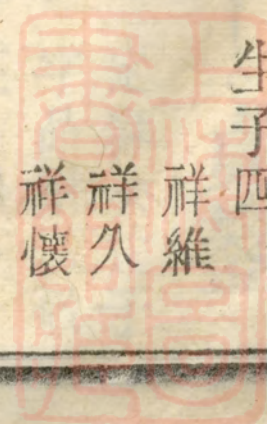 生子四
祥維
祥久
祥懷